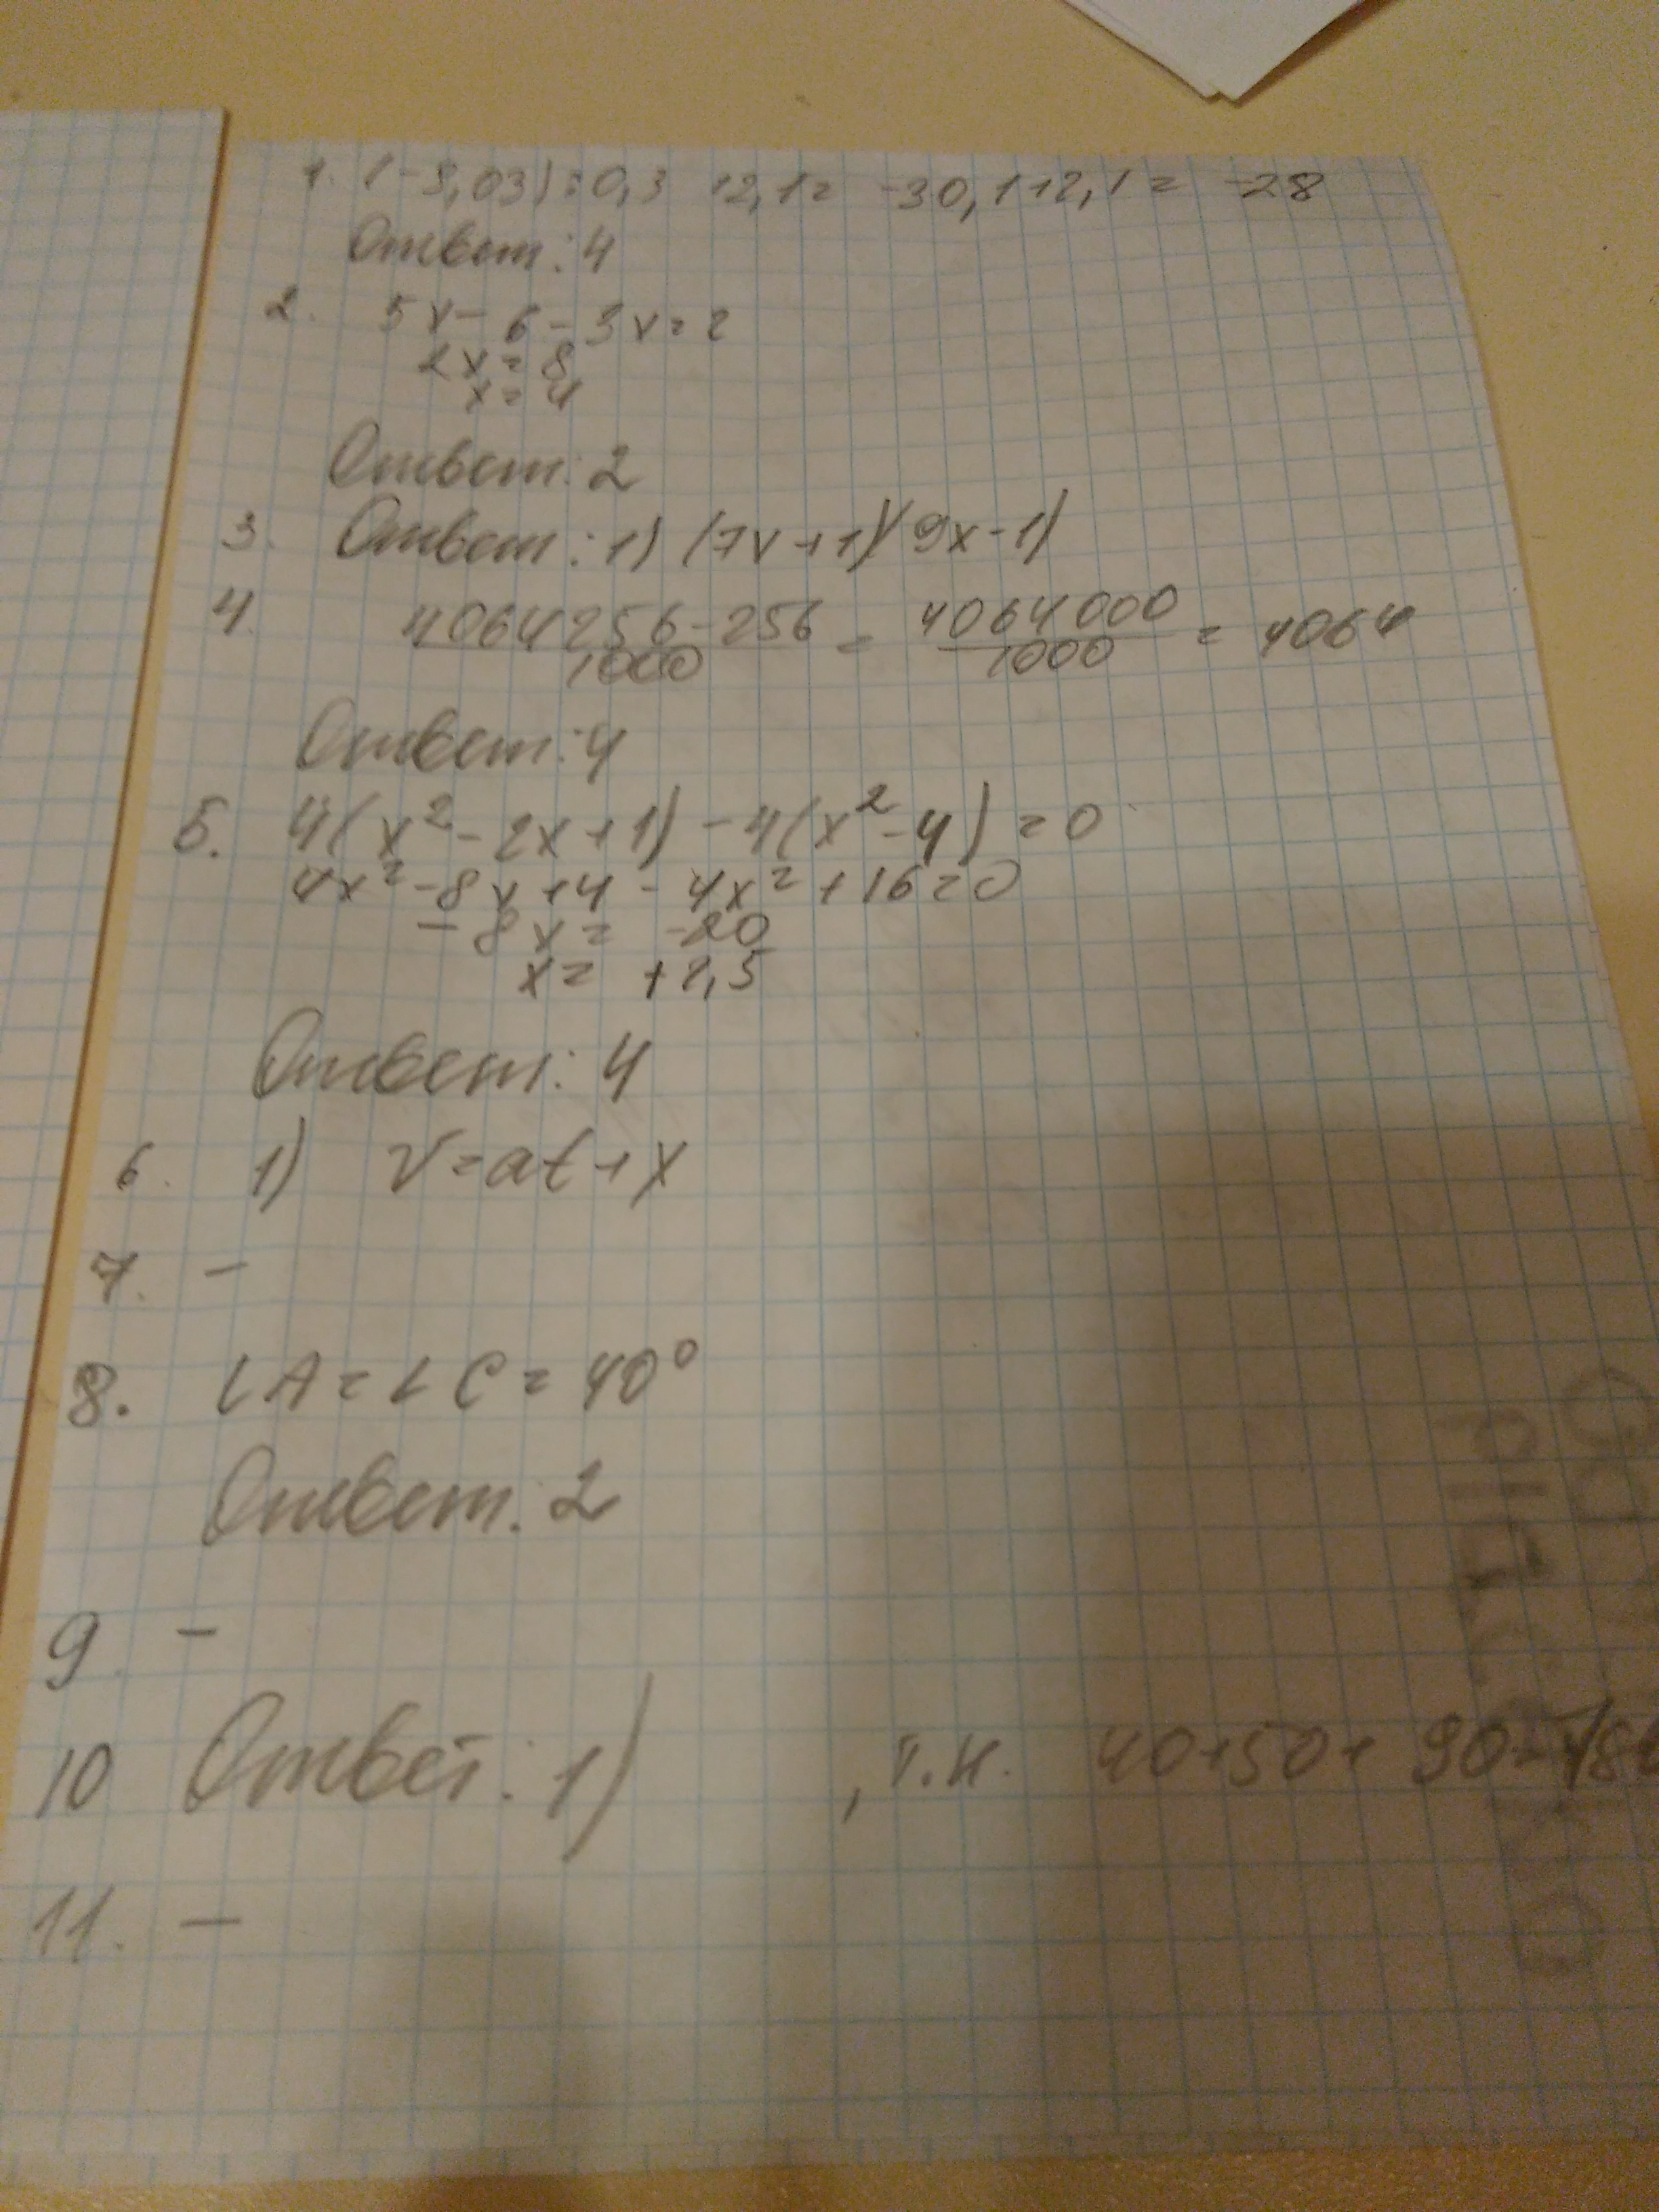 1. (-3,03):0,3 +2,1= -30,1+2,1= -28
Ответ: 4
2. 5x-6-3x=2
2x=8
x=4
Ответ: 2
3. Ответ: 1) (7x+1)(9x-1)
4. 4064256-256/1000 = 4064000/1000 = 4064
Ответ: 4
5. 4(x²-2x+1)-4(x²-4)=0
4x²-8x+4-4x²+16=0
-8x= -20
x= +2,5
Ответ: 4
6. 1) v=at+x
7. -
8. ∠A=∠C=40°
Ответ: 2
9. -
10 Ответ: 1) , т.к. 40+50+90=180
11. -